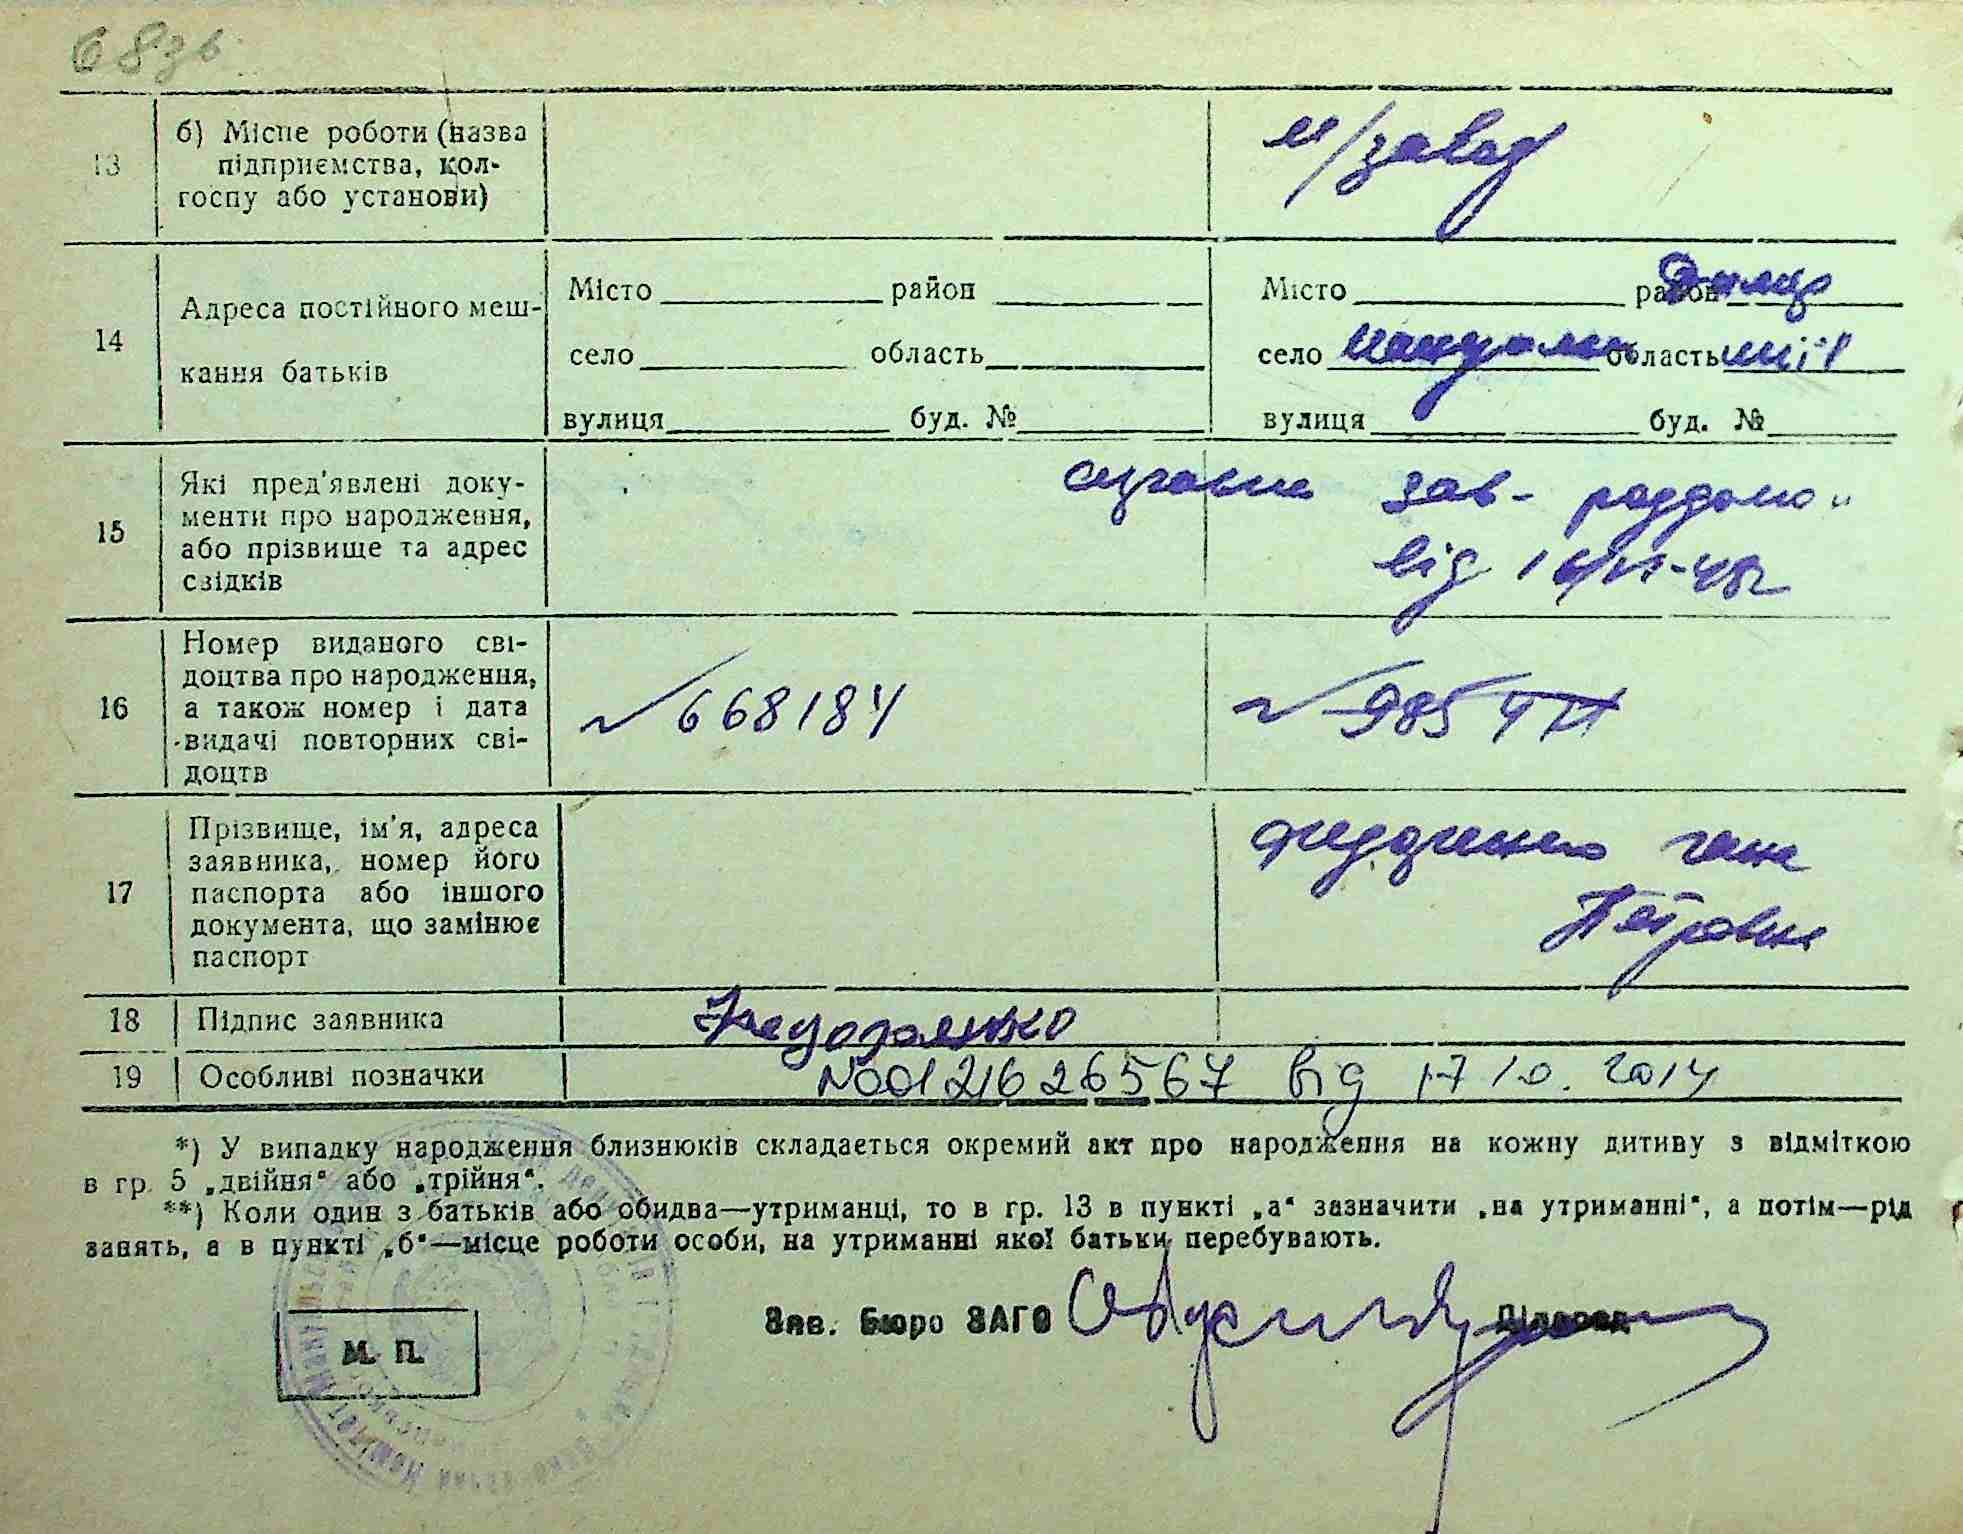 68зв
13
б) Місце роботи (назва
підприємства, кол-
госпу або установи)
м/завод
14
Адреса постійного меш-
кання батьків
Місто район
село область
вулиця буд. №
Місто район
село область
вулиця буд. №
15
Які пред'явлені доку-
менти про народження,
або прізвище та адрес
свідків
зав- роддомо
від
16
Номер виданого сві-
доцтва про народження,
а також номер і дата
видачі повторних сві-
доцтв
№ 668184
№ 985
17
Прізвище, ім'я, адреса
заявника, номер його
паспорта або іншого
документа, що замінює
паспорт
Петровна
18
Підпис заявника
19
Особливі позначки
№00121626567 від 17 10. 2014
*) У випадку народження близнюків складається окремий акт про народження на кожну дитиву з відміткою
в гр. 5 „двійня“ або „трійня“.
**) Коли один з батьків або обидва—утриманці, то в гр. 13 в пункті „а“ зазначити „на утриманні“, а потім—рід
занять, а в пункті „б“—місце роботи особи, на утриманні якої батьки перебувають.
Зав. Бюро ЗАГС
Діловод
М. П.